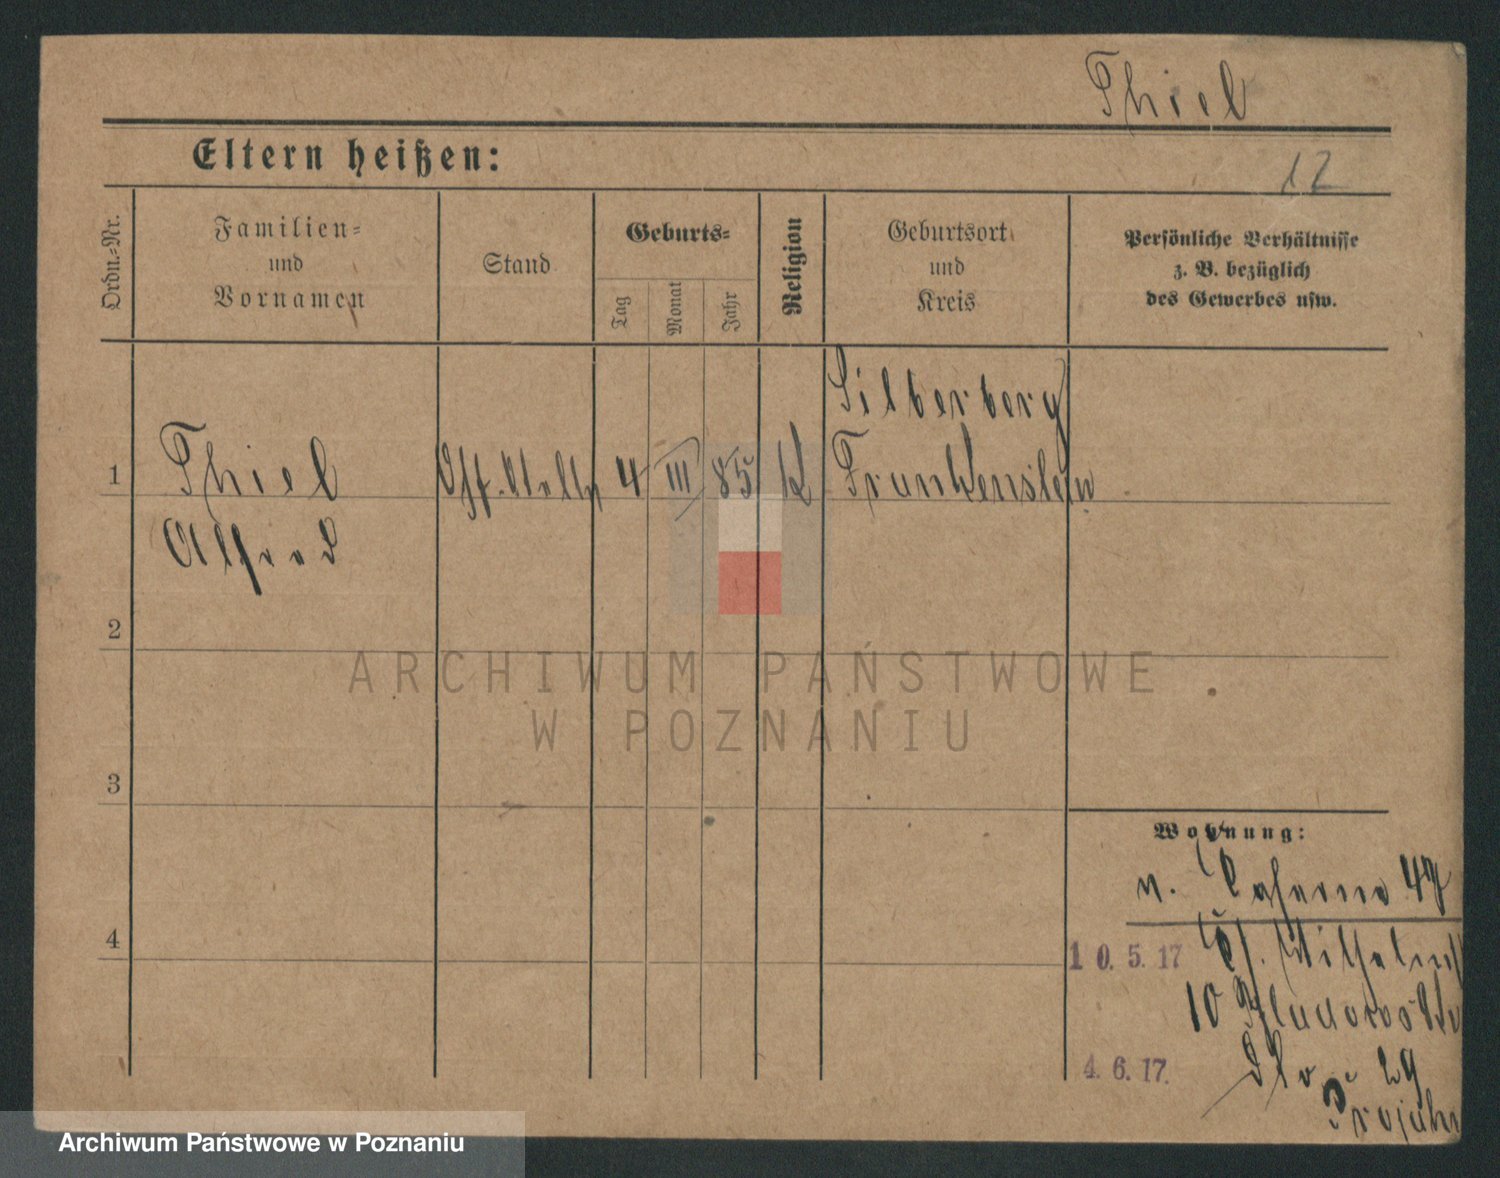 Thiel
Eltern heißen:
12
Ordn.-Nr.
Familien-
und
Vornamen
Stand
Geburts-
Tag
Monat
Jahr
Religion
Geburtsort
und
Kreis
Persönliche Verhältnisse
z. B. bezüglich
des Gewerbes usw.
Silberberg
1 Thiel Off. 4 III 85 K Frankenstein
Alfred
2
ARCHIWUM PAŃSTWOWE
W POZNANIU
3
Wohnung:
n. Caserne 47
4
10. 5. 17
10
4. 6. 17.
29
Archiwum Państwowe w Poznaniu